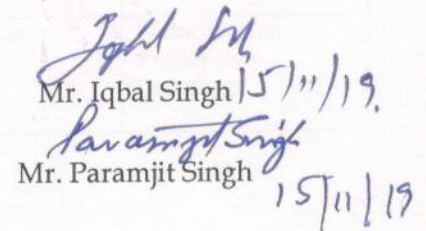 Iqbal Sgh
Mr. Iqbal Singh 15/11/19.
Paramjit Singh
Mr. Paramjit Singh
15/11/19